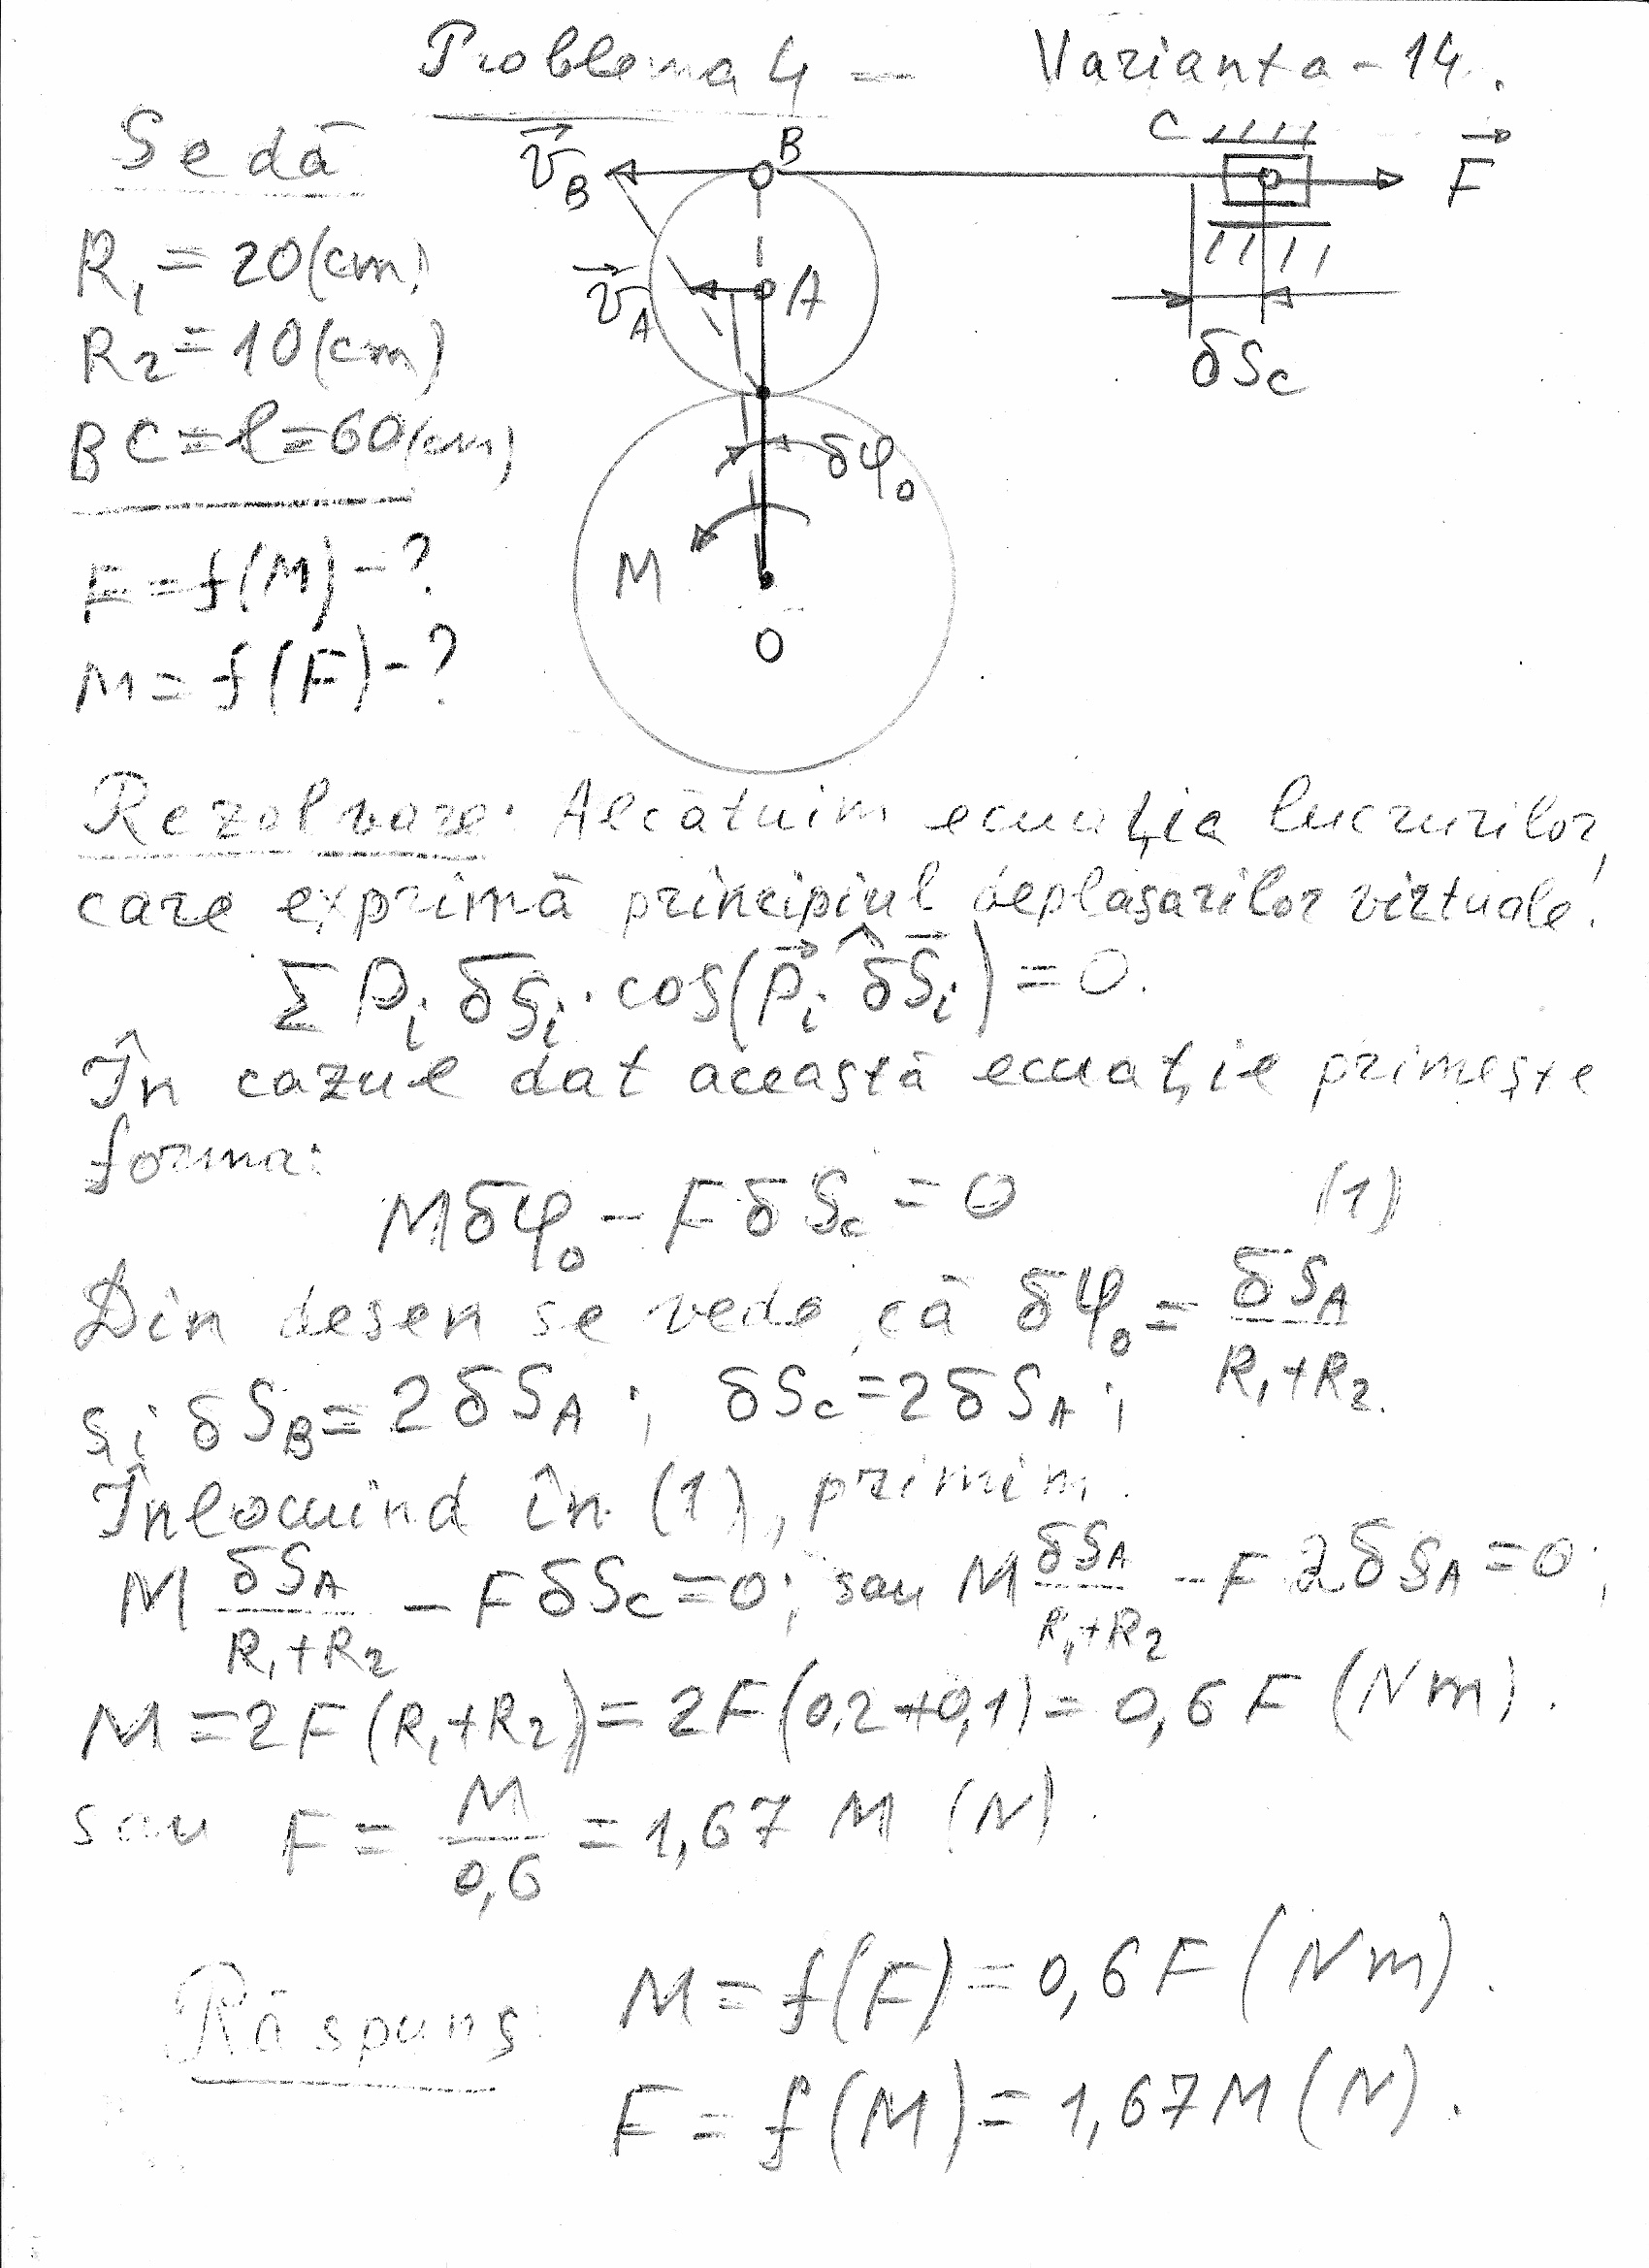 Problema 4 — Varianta - 14.
Se dă
R₁ = 20 (cm)
R₂ = 10 (cm)
BC = l = 60 (cm)
F = f(M) - ?
M = f(F) - ?
v⃗_B
B
C
F⃗
v⃗_A
A
δS_C
δφ₀
M
O
Rezolvare. Alcătuim ecuația lucrurilor,
care exprimă principiul deplasărilor virtuale:
Σ P_i δS_i · cos(P⃗_i ^ δS⃗_i) = 0.
În cazul dat această ecuație primește
forma:
Mδφ₀ - FδS_C = 0 (1)
Din desen se vede, că δφ₀ = δS_A / (R₁+R₂)
și δS_B = 2δS_A ; δS_C = 2δS_A ;
Înlocuind în (1), primim.
M δS_A / (R₁+R₂) - FδS_C = 0 ; sau M δS_A / (R₁+R₂) - F 2δS_A = 0 ;
M = 2F(R₁+R₂) = 2F(0,2+0,1) = 0,6 F (Nm).
sau F = M / 0,6 = 1,67 M (N).
Răspuns: M = f(F) = 0,6 F (Nm).
F = f(M) = 1,67 M (N).